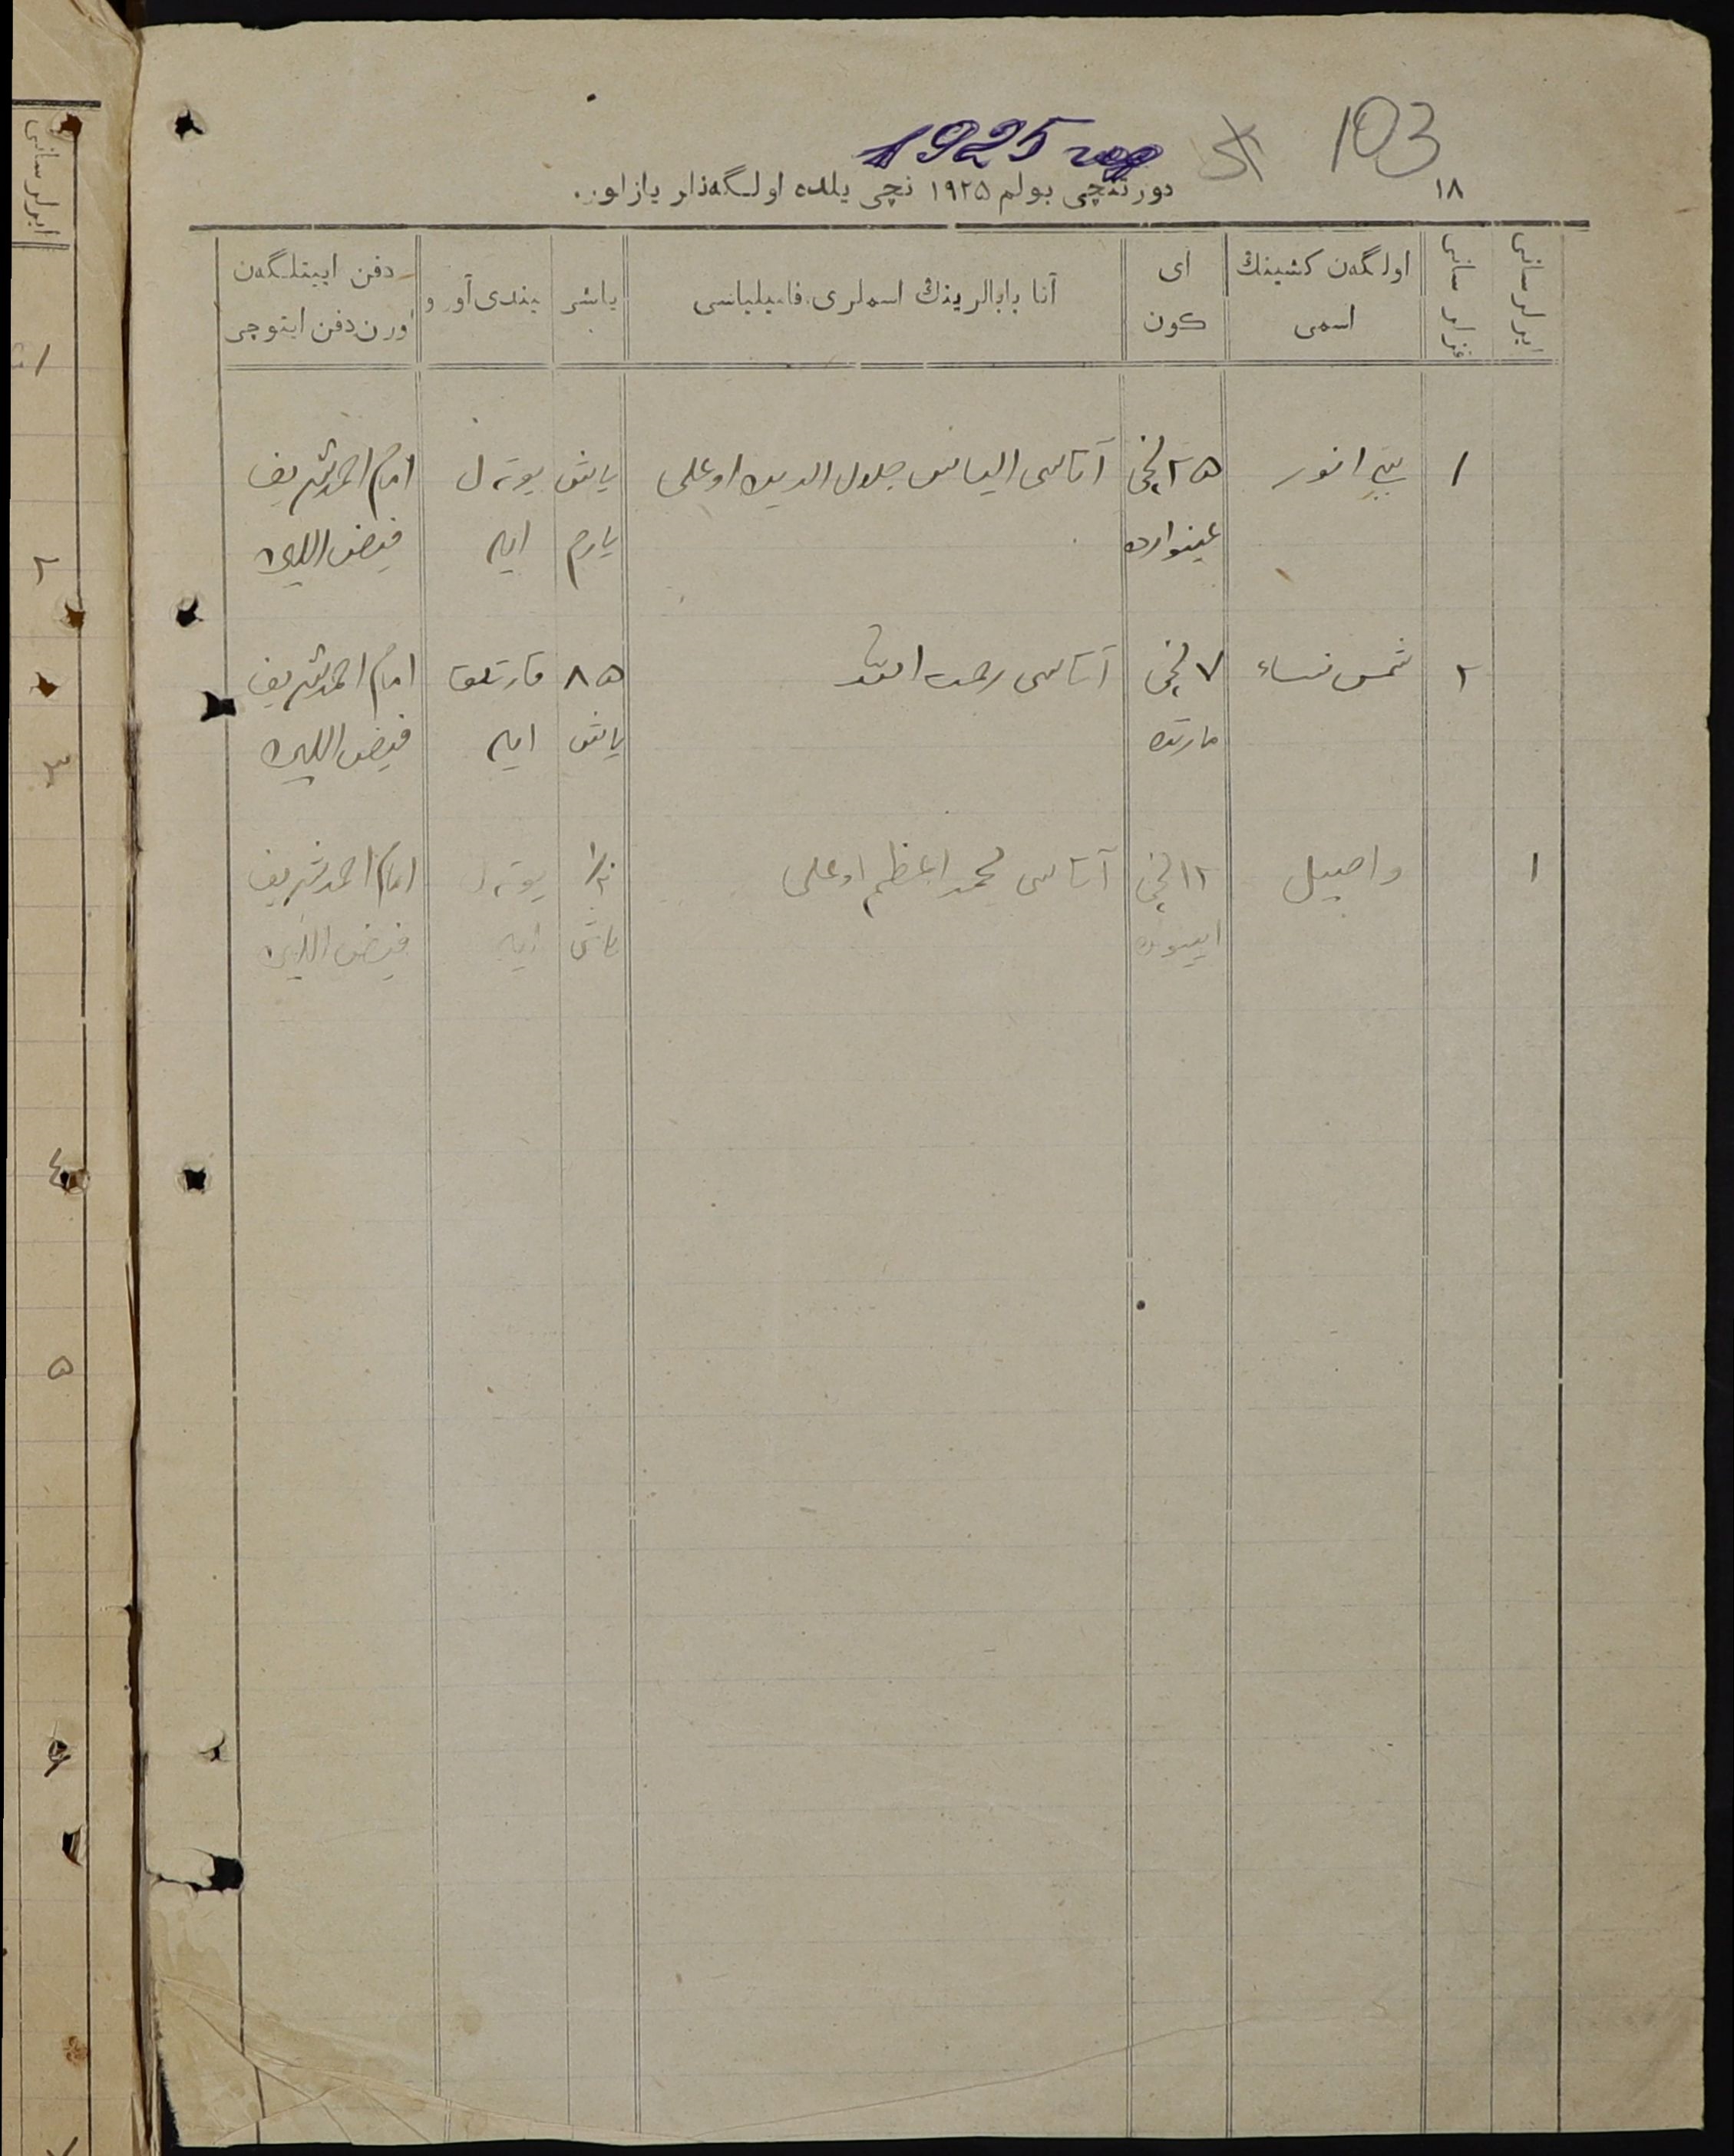 103
1925 год
١٨
دورتنچی بولم ١٩٢٥ نچی یلده اولگه‌نلر یازلور.
ایرلر سانی
قزلر سانی
اولگه‌ن كشینڭ اسمی
آی كون
آتا بابالرینڭ اسملری، فامیلیاسی
یاشی
نیندی آورو
دفن ایتلگه‌ن اورن دفن ایتوچی
١
بی‌بی انور
٢٥ نچی
غینوارده
آتاسی الیاس جلال الدین اوغلی
یاش
یارم
یوته‌ل
ایله
امام احمدشریف
فیض اللین
٢
شمس نساء
٧ نچی
مارتده
آتاسی رحمة الله
٨٥
یاش
قارتلق
ایله
امام احمدشریف
فیض اللین
١
واصیل
١٢ نچی
آتاسی محمد اعظم اوغلی
یاش
یوته‌ل
ایله
امام احمدشریف
فیض اللین
ایرلر سانی
٢
٣
٤
٥
٦